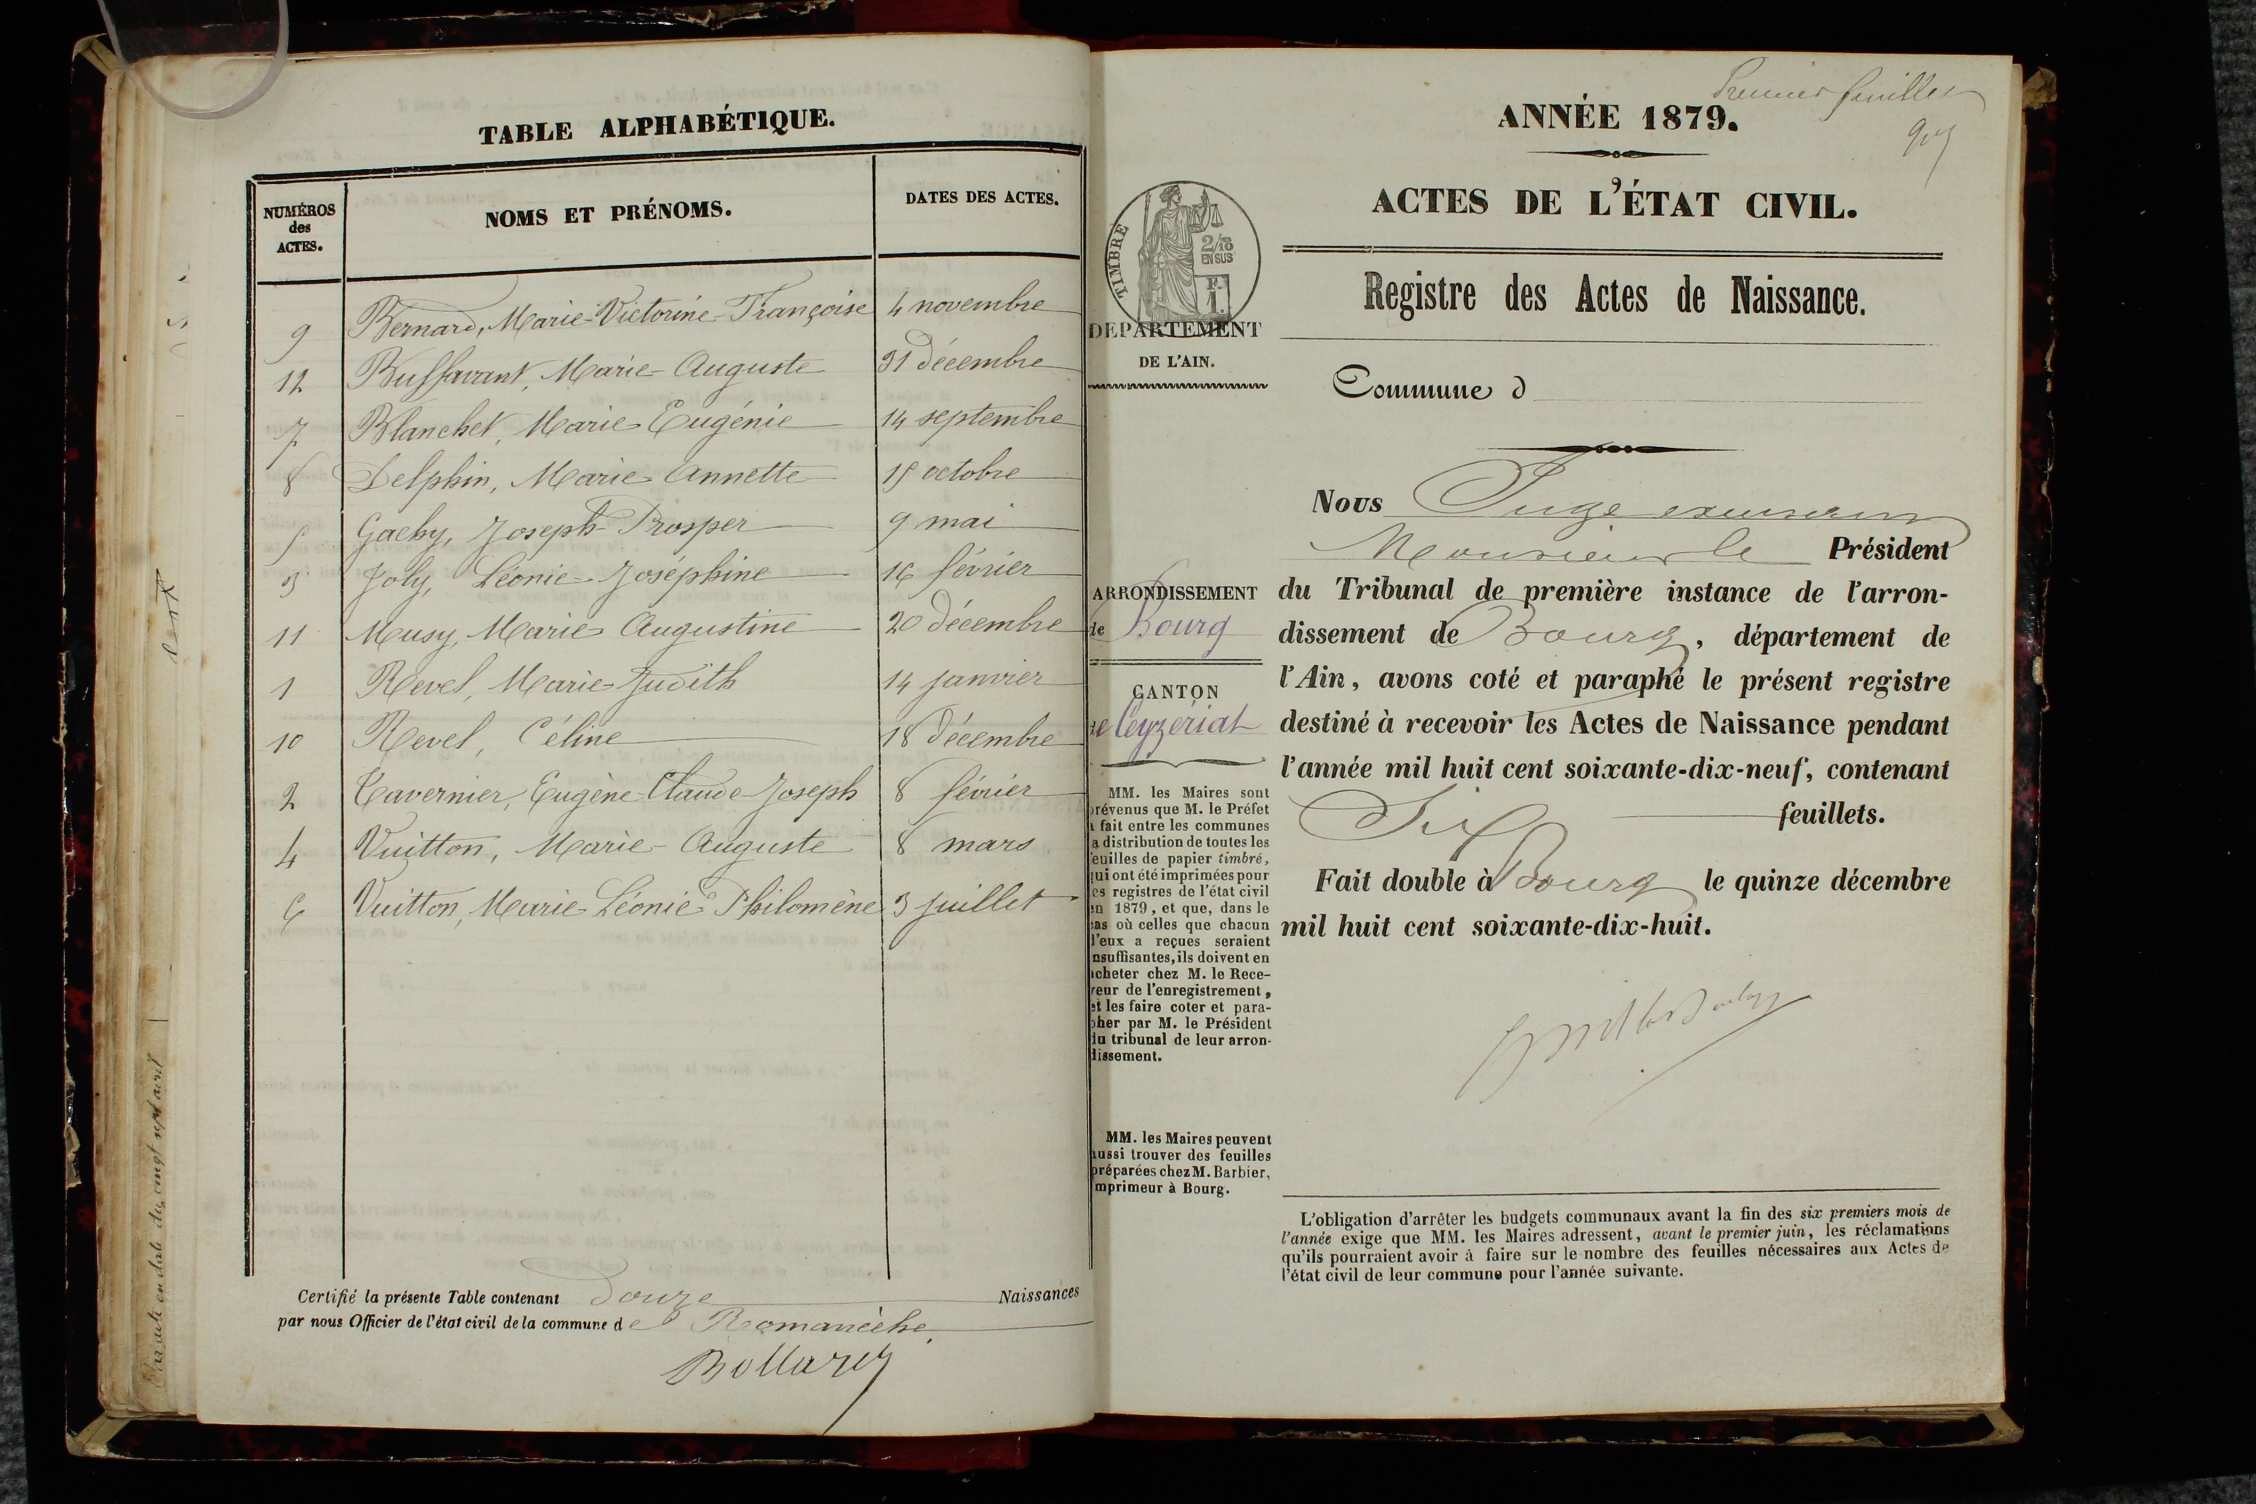 TABLE ALPHABÉTIQUE.
NUMÉROS des ACTES.
NOMS ET PRÉNOMS.
DATES DES ACTES.
9 Bernard, Marie-Victorine-Françoise 4 novembre
12 Buffavant, Marie-Auguste 31 décembre
7 Blanchet, Marie Eugénie 14 septembre
8 Delphin, Marie Annette 15 octobre
5 Gachy, Joseph-Prosper 9 mai
3 Joly, Léonie-Joséphine 16 février
11 Musy, Marie Augustine 20 décembre
1 Revel, Marie-Judith 14 janvier
10 Revel, Céline 18 décembre
2 Tavernier, Eugène-Claude-Joseph 8 février
4 Vuitton, Marie-Auguste 8 mars
6 Vuitton, Marie-Léonie Philomène 3 juillet
Certifié la présente Table contenant Douze Naissances
par nous Officier de l'état civil de la commune de Romanèche.
Premier feuillet
ANNÉE 1879.
ACTES DE L'ÉTAT CIVIL.
TIMBRE
2/10
EN SUS
F.
1.
DEPARTEMENT
DE L'AIN.
Registre des Actes de Naissance.
Commune d
Nous Juge
Monsieur le Président
du Tribunal de première instance de l'arron-
dissement de Bourg, département de
l'Ain, avons coté et paraphé le présent registre
destiné à recevoir les Actes de Naissance pendant
l'année mil huit cent soixante-dix-neuf, contenant
Six feuillets.
Fait double à Bourg le quinze décembre
mil huit cent soixante-dix-huit.
ARRONDISSEMENT
de Bourg
CANTON
de Ceyzériat
MM. les Maires sont
prévenus que M. le Préfet
a fait entre les communes
la distribution de toutes les
feuilles de papier timbré,
qui ont été imprimées pour
les registres de l'état civil
en 1879, et que, dans le
cas où celles que chacun
d'eux a reçues seraient
insuffisantes, ils doivent en
acheter chez M. le Rece-
veur de l'enregistrement,
et les faire coter et para-
pher par M. le Président
du tribunal de leur arron-
dissement.
MM. les Maires peuvent
aussi trouver des feuilles
préparées chez M. Barbier,
imprimeur à Bourg.
L'obligation d'arrêter les budgets communaux avant la fin des six premiers mois de
l'année exige que MM. les Maires adressent, avant le premier juin, les réclamations
qu'ils pourraient avoir à faire sur le nombre des feuilles nécessaires aux Actes de
l'état civil de leur commune pour l'année suivante.